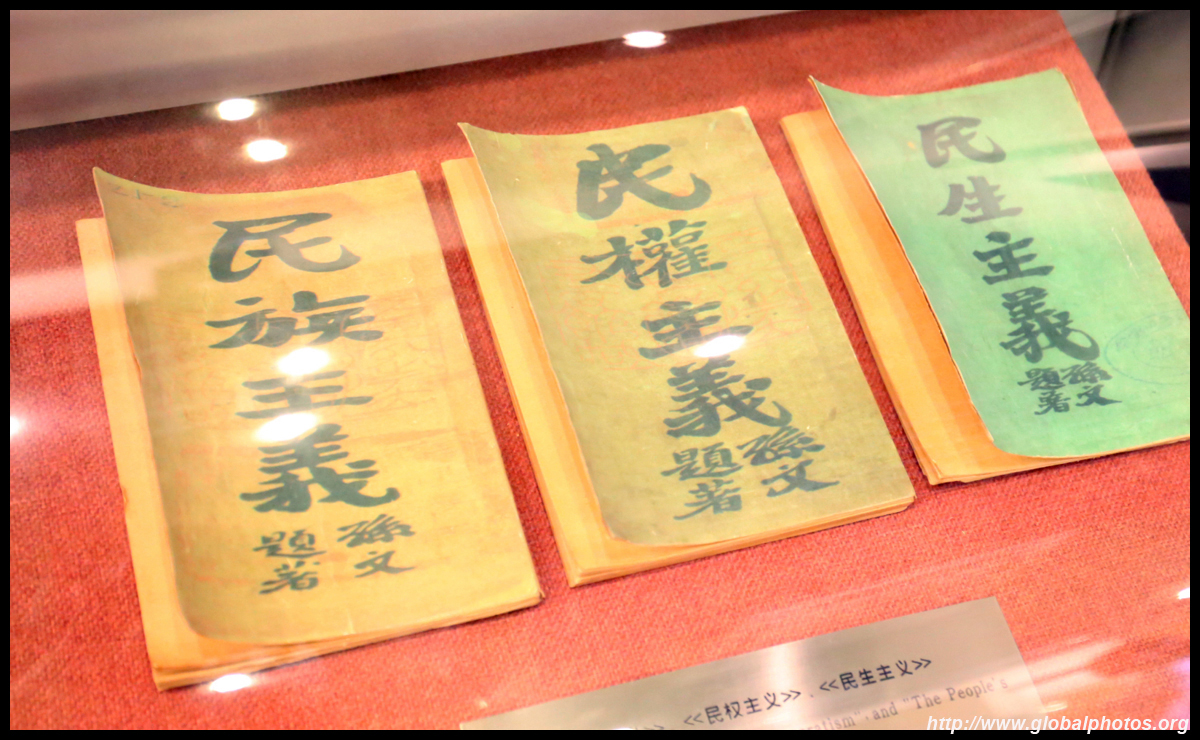 民族主義
孫文
題著
民權主義
孫文
題著
民生主義
孫文
題著
>> 、<<民权主义>> 、<<民生主义>>
and "The People's
http://www.globalphotos.org